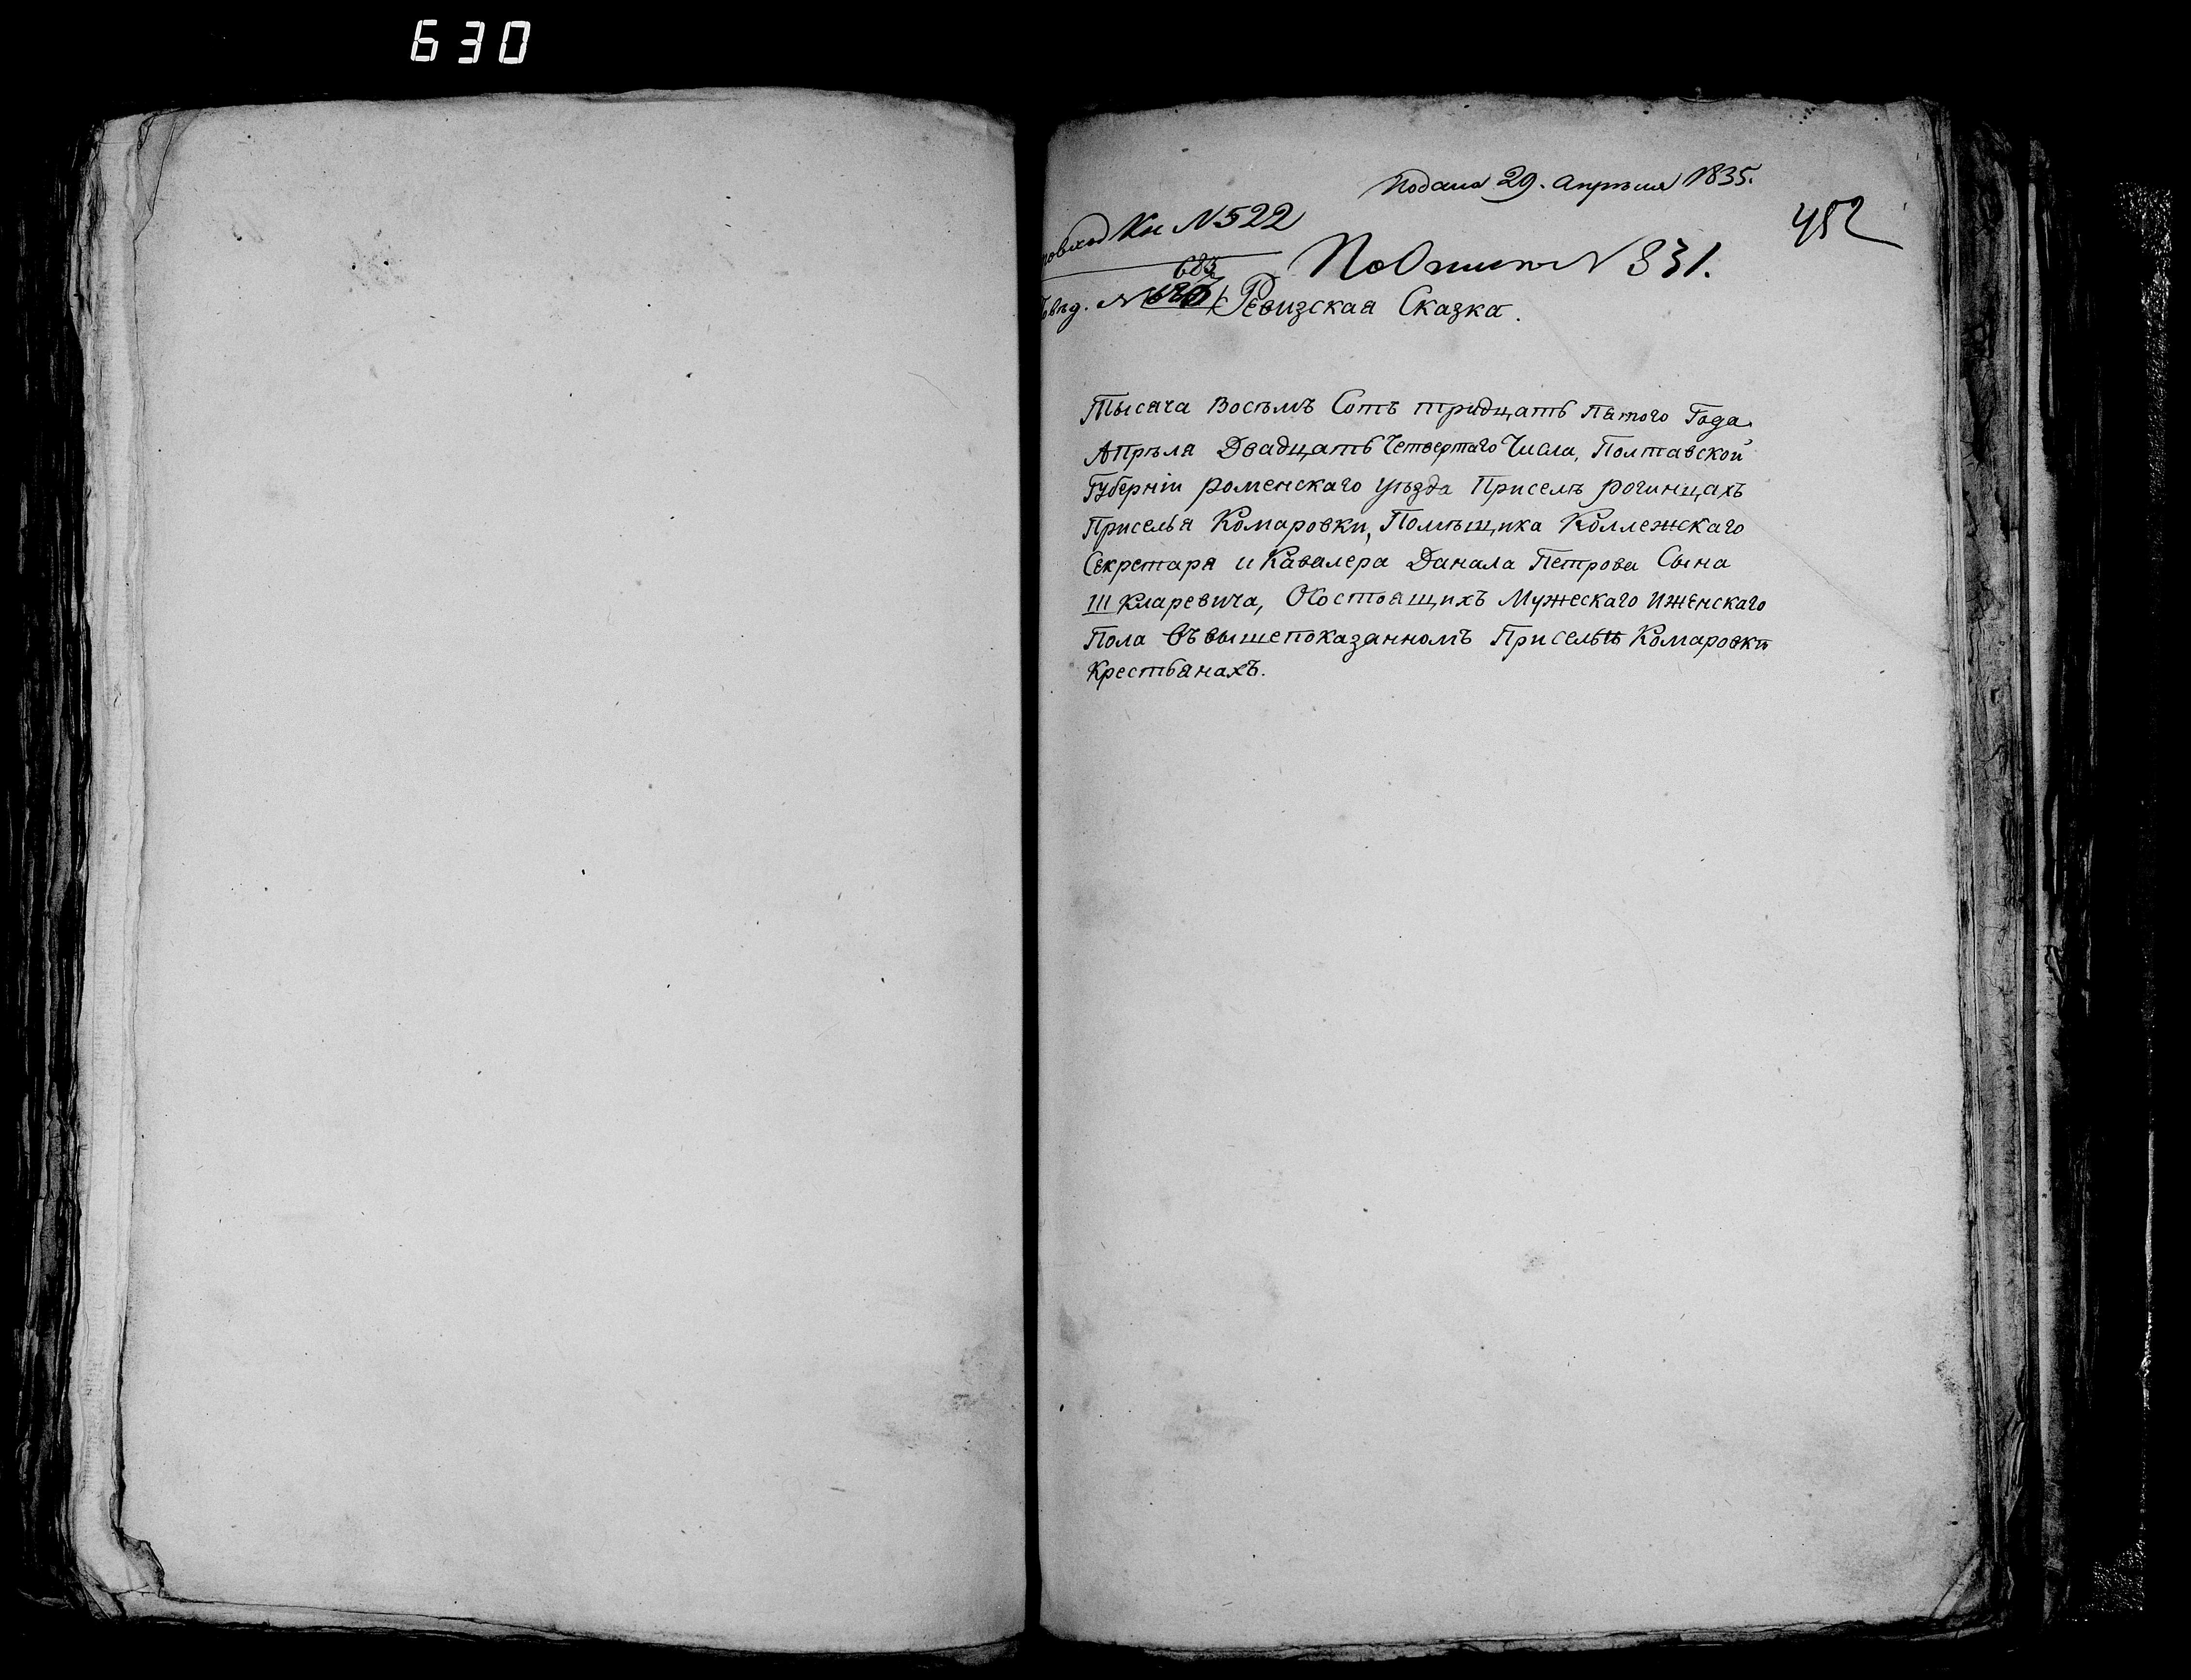 630
Подана 29. Апрѣля 1835.
452
Кн № 522
По Описи № 831.
683
№
Ревизская Сказка.
Тысяча Восѣмъ Сотъ тридцать Пятого Года
Апрѣля Двадцать Четвертаго Числа, Полтавской
Губерніи роменскаго уѣзда Приселѣ рогинцахъ
Приселья Комаровки, Помѣщика Коллежскаго
Секретаря и Кавалера Данала Петрова Сына
Шкларевича, О Состоящихъ Мужескаго И женскаго
Пола Въ вышепоказанномъ Приселѣѣ Комаровки
Крестьянахъ.